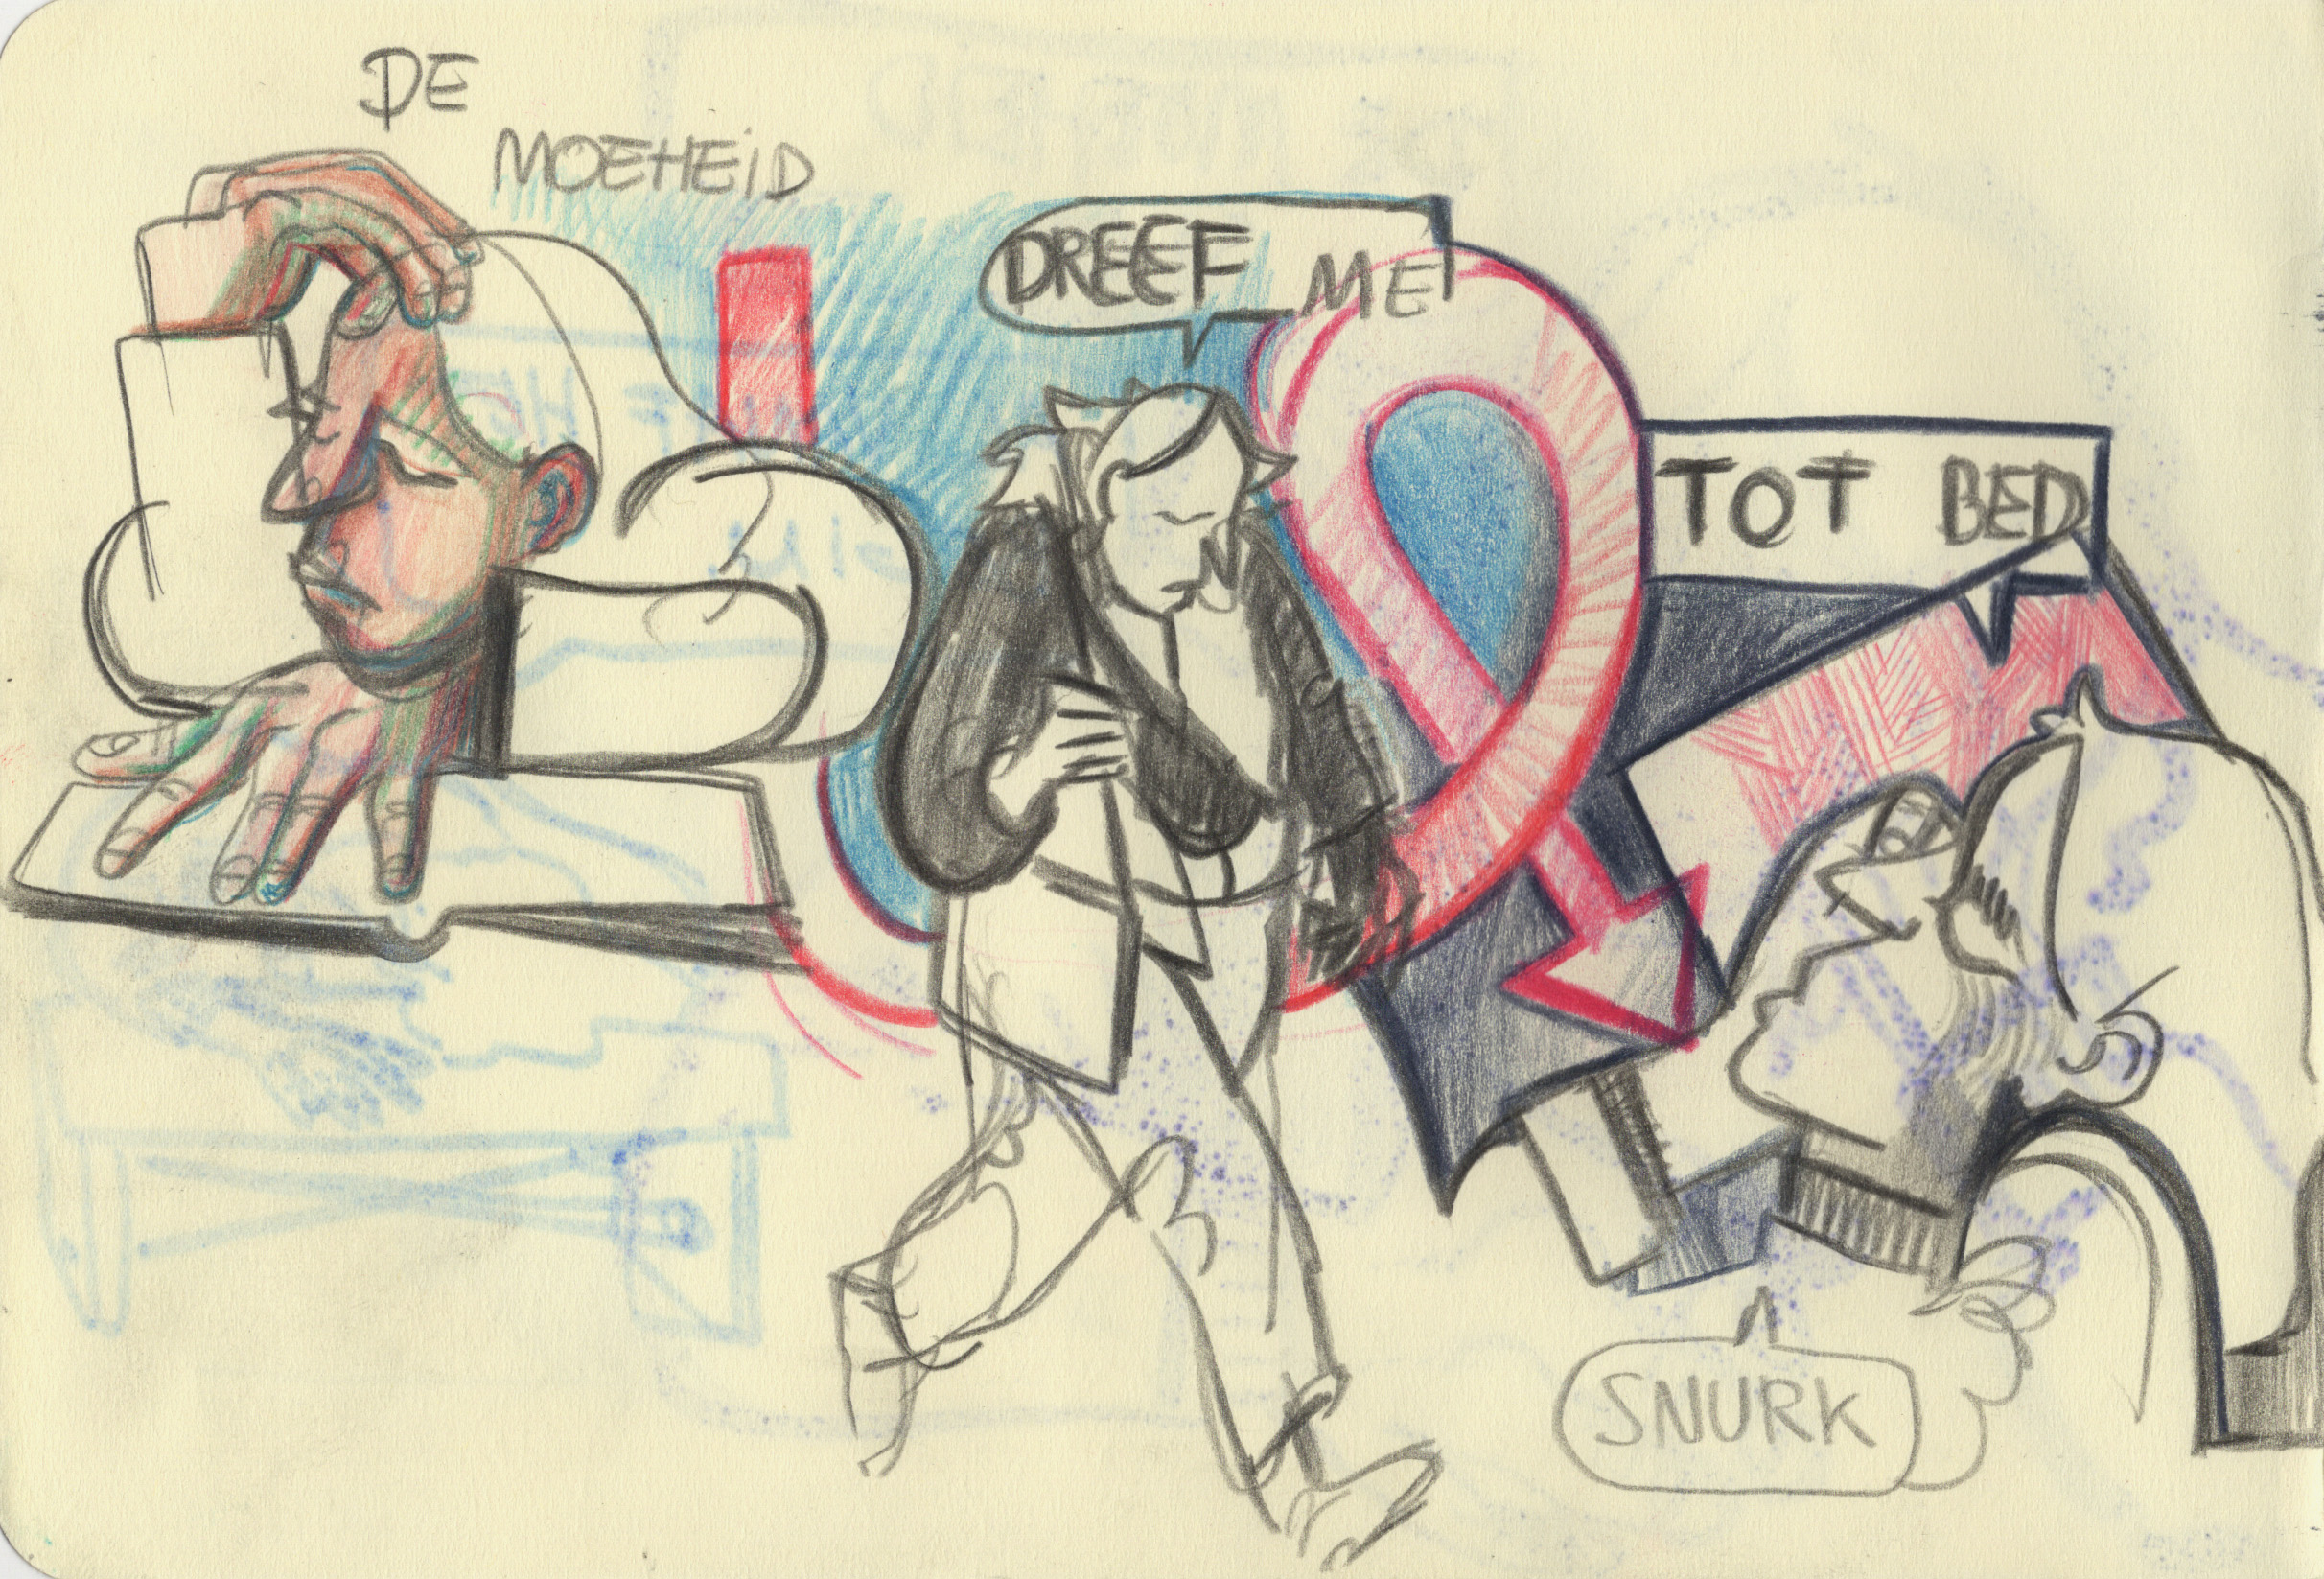 DE
MOEHEiD
DREEF ME
TOT BED
SNURK